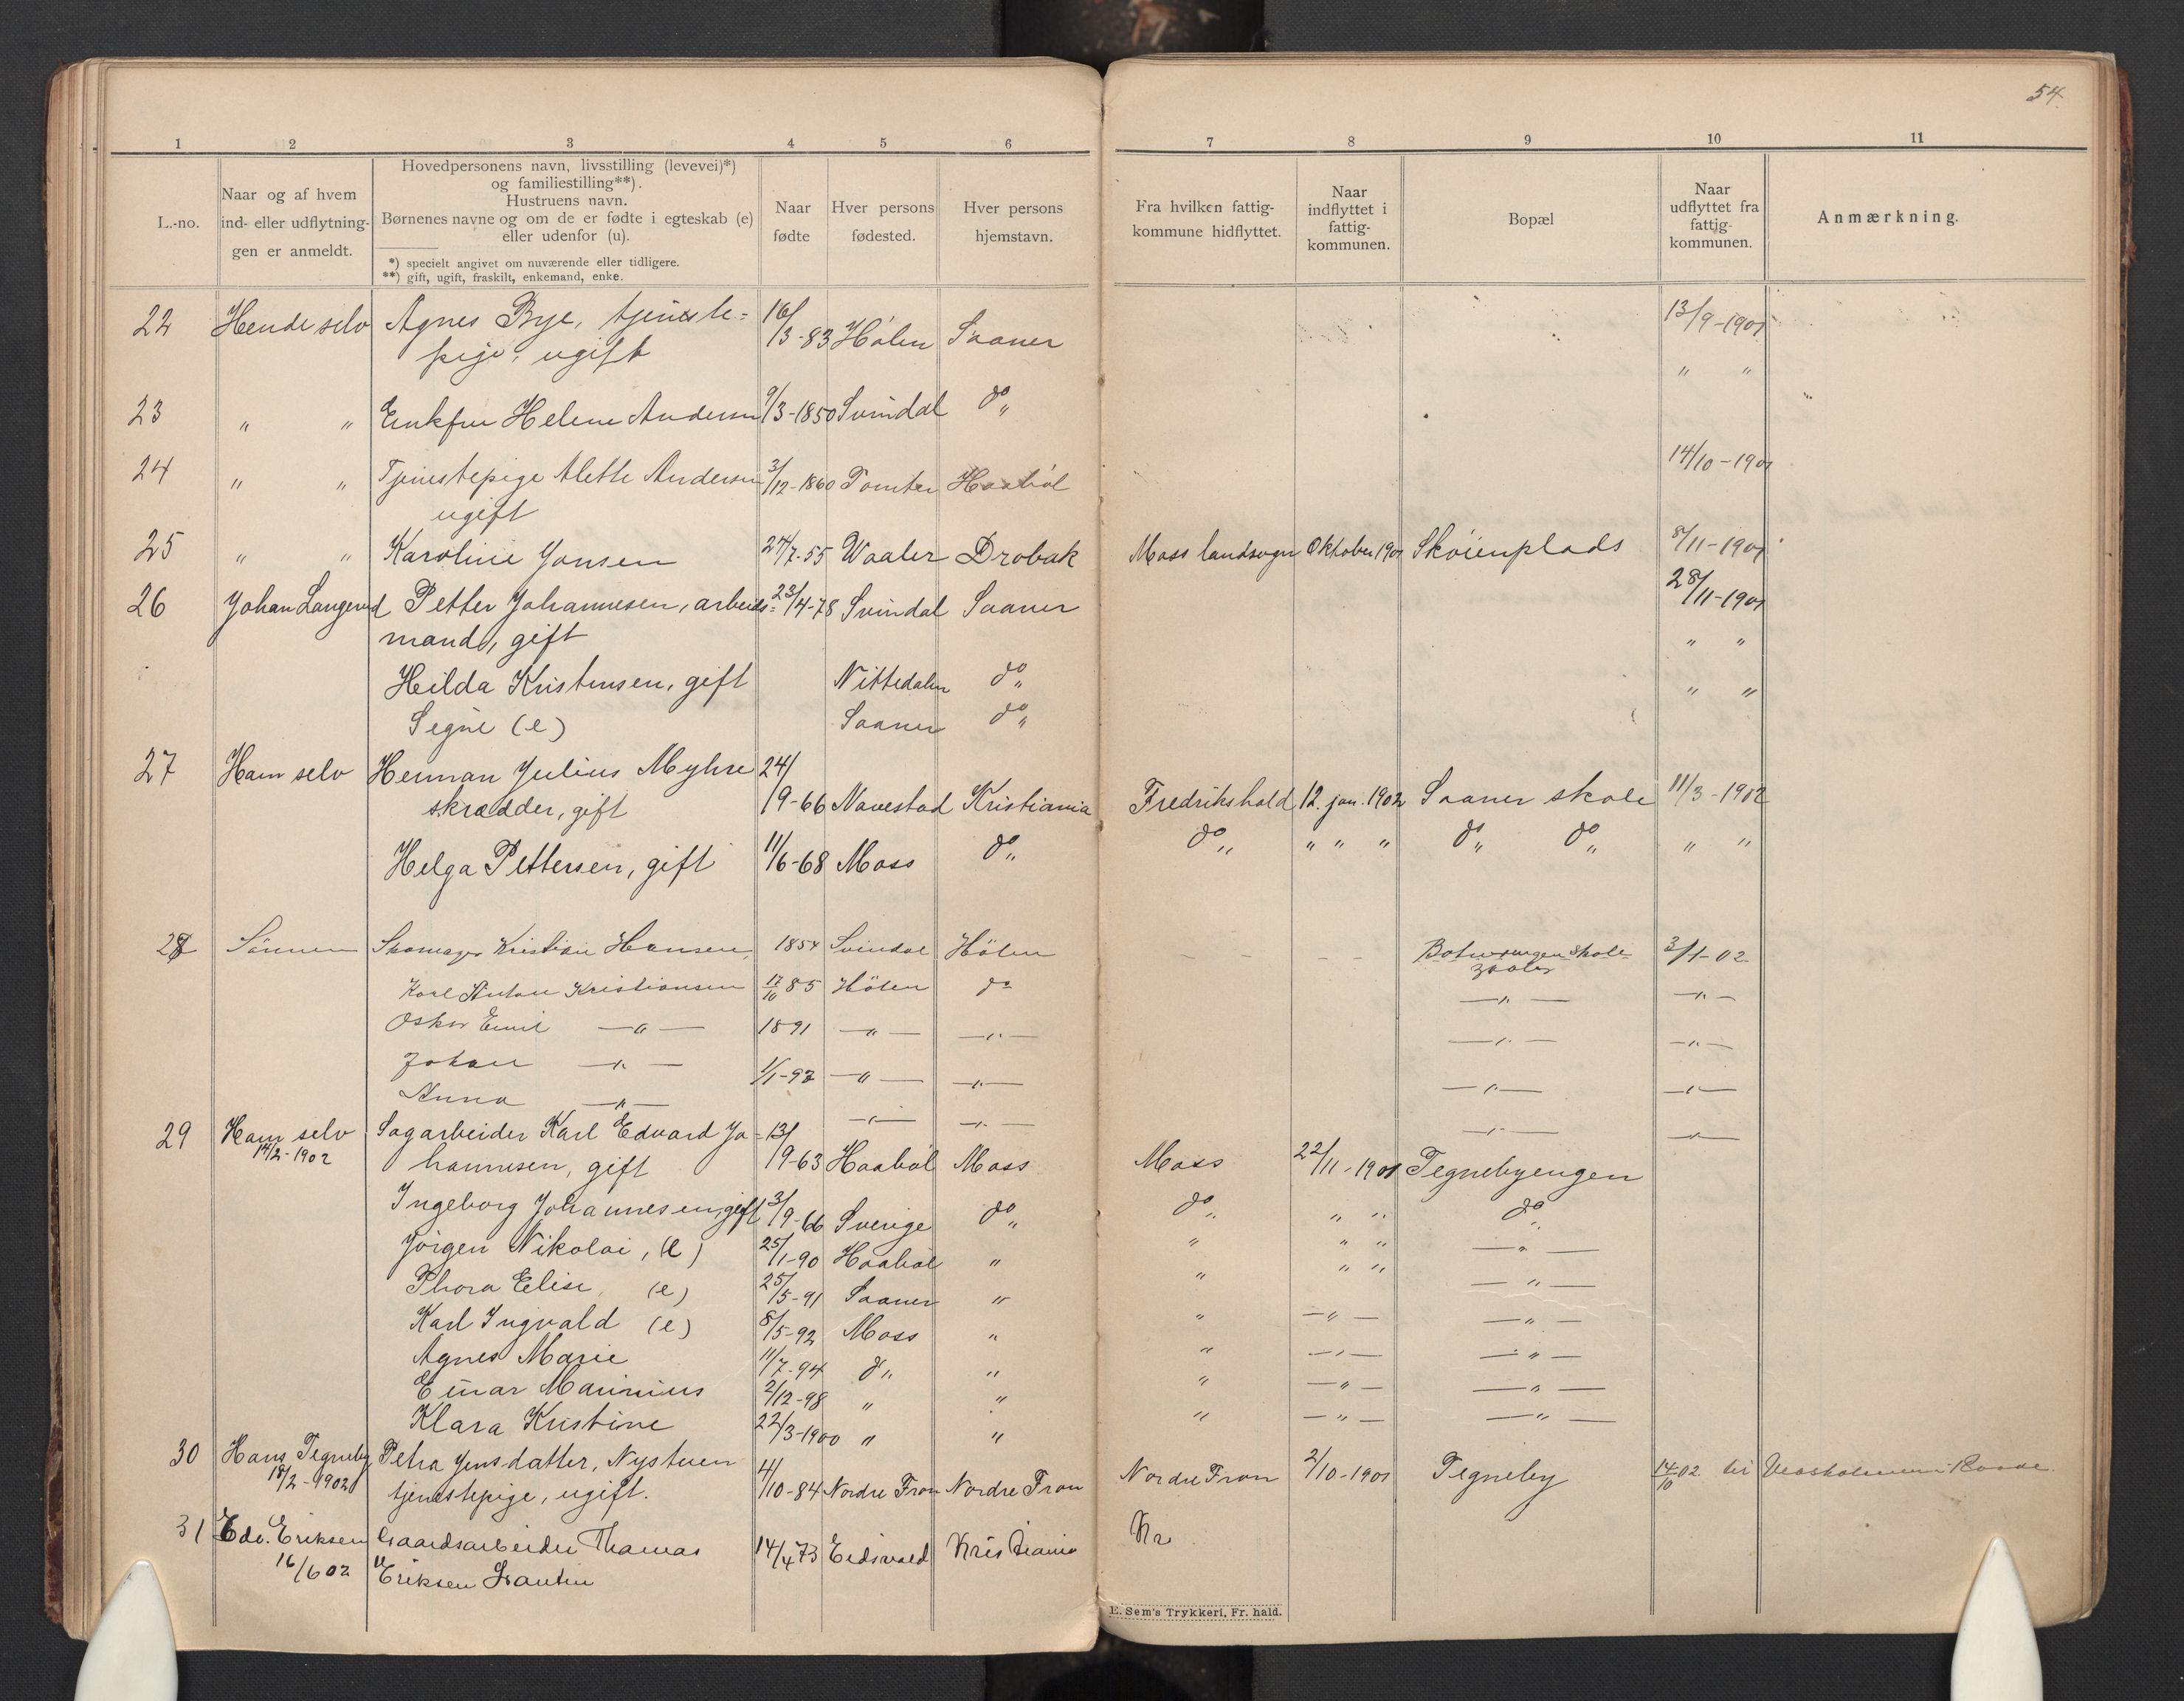 54.
1 2 3 4 5 6 7 8 9 10 11
L.-no.
Naar og af hvem
ind- eller udflytnin-
gen er anmeldt.
Hovedpersonens navn, livsstilling (levevei)*)
og familiestilling**).
Hustruens navn.
Børnenes navne og om de er fødte i egteskab (e)
eller udenfor (u).
*) specielt angivet om nuværende eller tidligere.
**) gift, ugift, fraskilt, enkemand, enke.
Naar
fødte
Hver persons
fødested.
Hver persons
hjemstavn.
Fra hvilken fattig-
kommune hidflyttet.
Naar
indflyttet i
fattig-
kommunen.
Bopæl
Naar
udflyttet fra
fattig-
kommunen.
Anmærkning.
22 Hende selv Agnes Bye, tjeneste= 16/3-83 Hölen Saaner 13/9-1901
pige, ugift " "
23 " " Enkfru Helene Andersen 9/3-1850 Svindal do "
24 " " Tjenestepige Alette Andersen 3/12-1860 Tomter Haaböl 14/10-1901
ugift
25 " " Karoline Jansen 27/7-55 Waaler Drobak Moss landsogn Oktober 1901 Skoienplads 8/11-1901
26 Johan Langerud Petter Johannesen, arbeids= 23/4-78 Svindal Saaner 28/11-1901
mand, gift " "
Heilda Kristensen, gift Nittedalen do " " "
Segne (e) Saaner do "
27 Ham selv Herman Julius Myhre 24/9-66 Navestad Kristiania Fredrikshald 12. jan. 1902 Saaner skole 11/3-1902
skrædder, gift
Helga Pettersen, gift 11/6-68 Moss do " do " " " " do " do " " "
28 Sönnen Skomager Kristian Hansen, 1854 Svindal Hölen 3/1-02
Karl Anton Kristiansen 17/10 85 Hölen do —"— —"—
Oskar Emil —"— 1891 —"— —"— —"— —"—
Johan —"— 1/1-92 —"— —"— —"— —"—
Anna —"— —"— —"— —"— —"—
29 Ham selv Sagarbeider Karl Edvard Jo- 13/9-63 Haaböl Moss Moss 22/11-1901 Tegnebyengen
14/2-1902 hannesen, gift
Ingeborg Johannesen, gift 3/9-66 Sverige do " do " " " do "
Jörgen Nikolai, (e) 25/1-90 Haaböl " " " " —"—
Thora Elise, (e) 25/5-91 Saaner " " " " —"—
Karl Ingvald (e) 8/5-92 Moss " " —"— —"—
Agnes Marie 11/7-94 do " " " —"— —"—
Einar Marinius 2/12-98 " " " —"— —"—
Klara Kristine 22/3-1900 " " " —"— —"—
30 Hans Tegneby Petra Jensdatter, Nystuen 4/10-84 Nordre Fron Nordre Fron Nordre Fron 2/10-1901 Tegneby 14/10 02. til
18/2-1902 tjenestepige, ugift.
31 Edv. Eriksen Gaardsarbeider Thomas 14/4 73 Eidsvold Kristiania Kr
16/6 02 Eriksen
E. Sem's Trykkeri, Fr. hald.